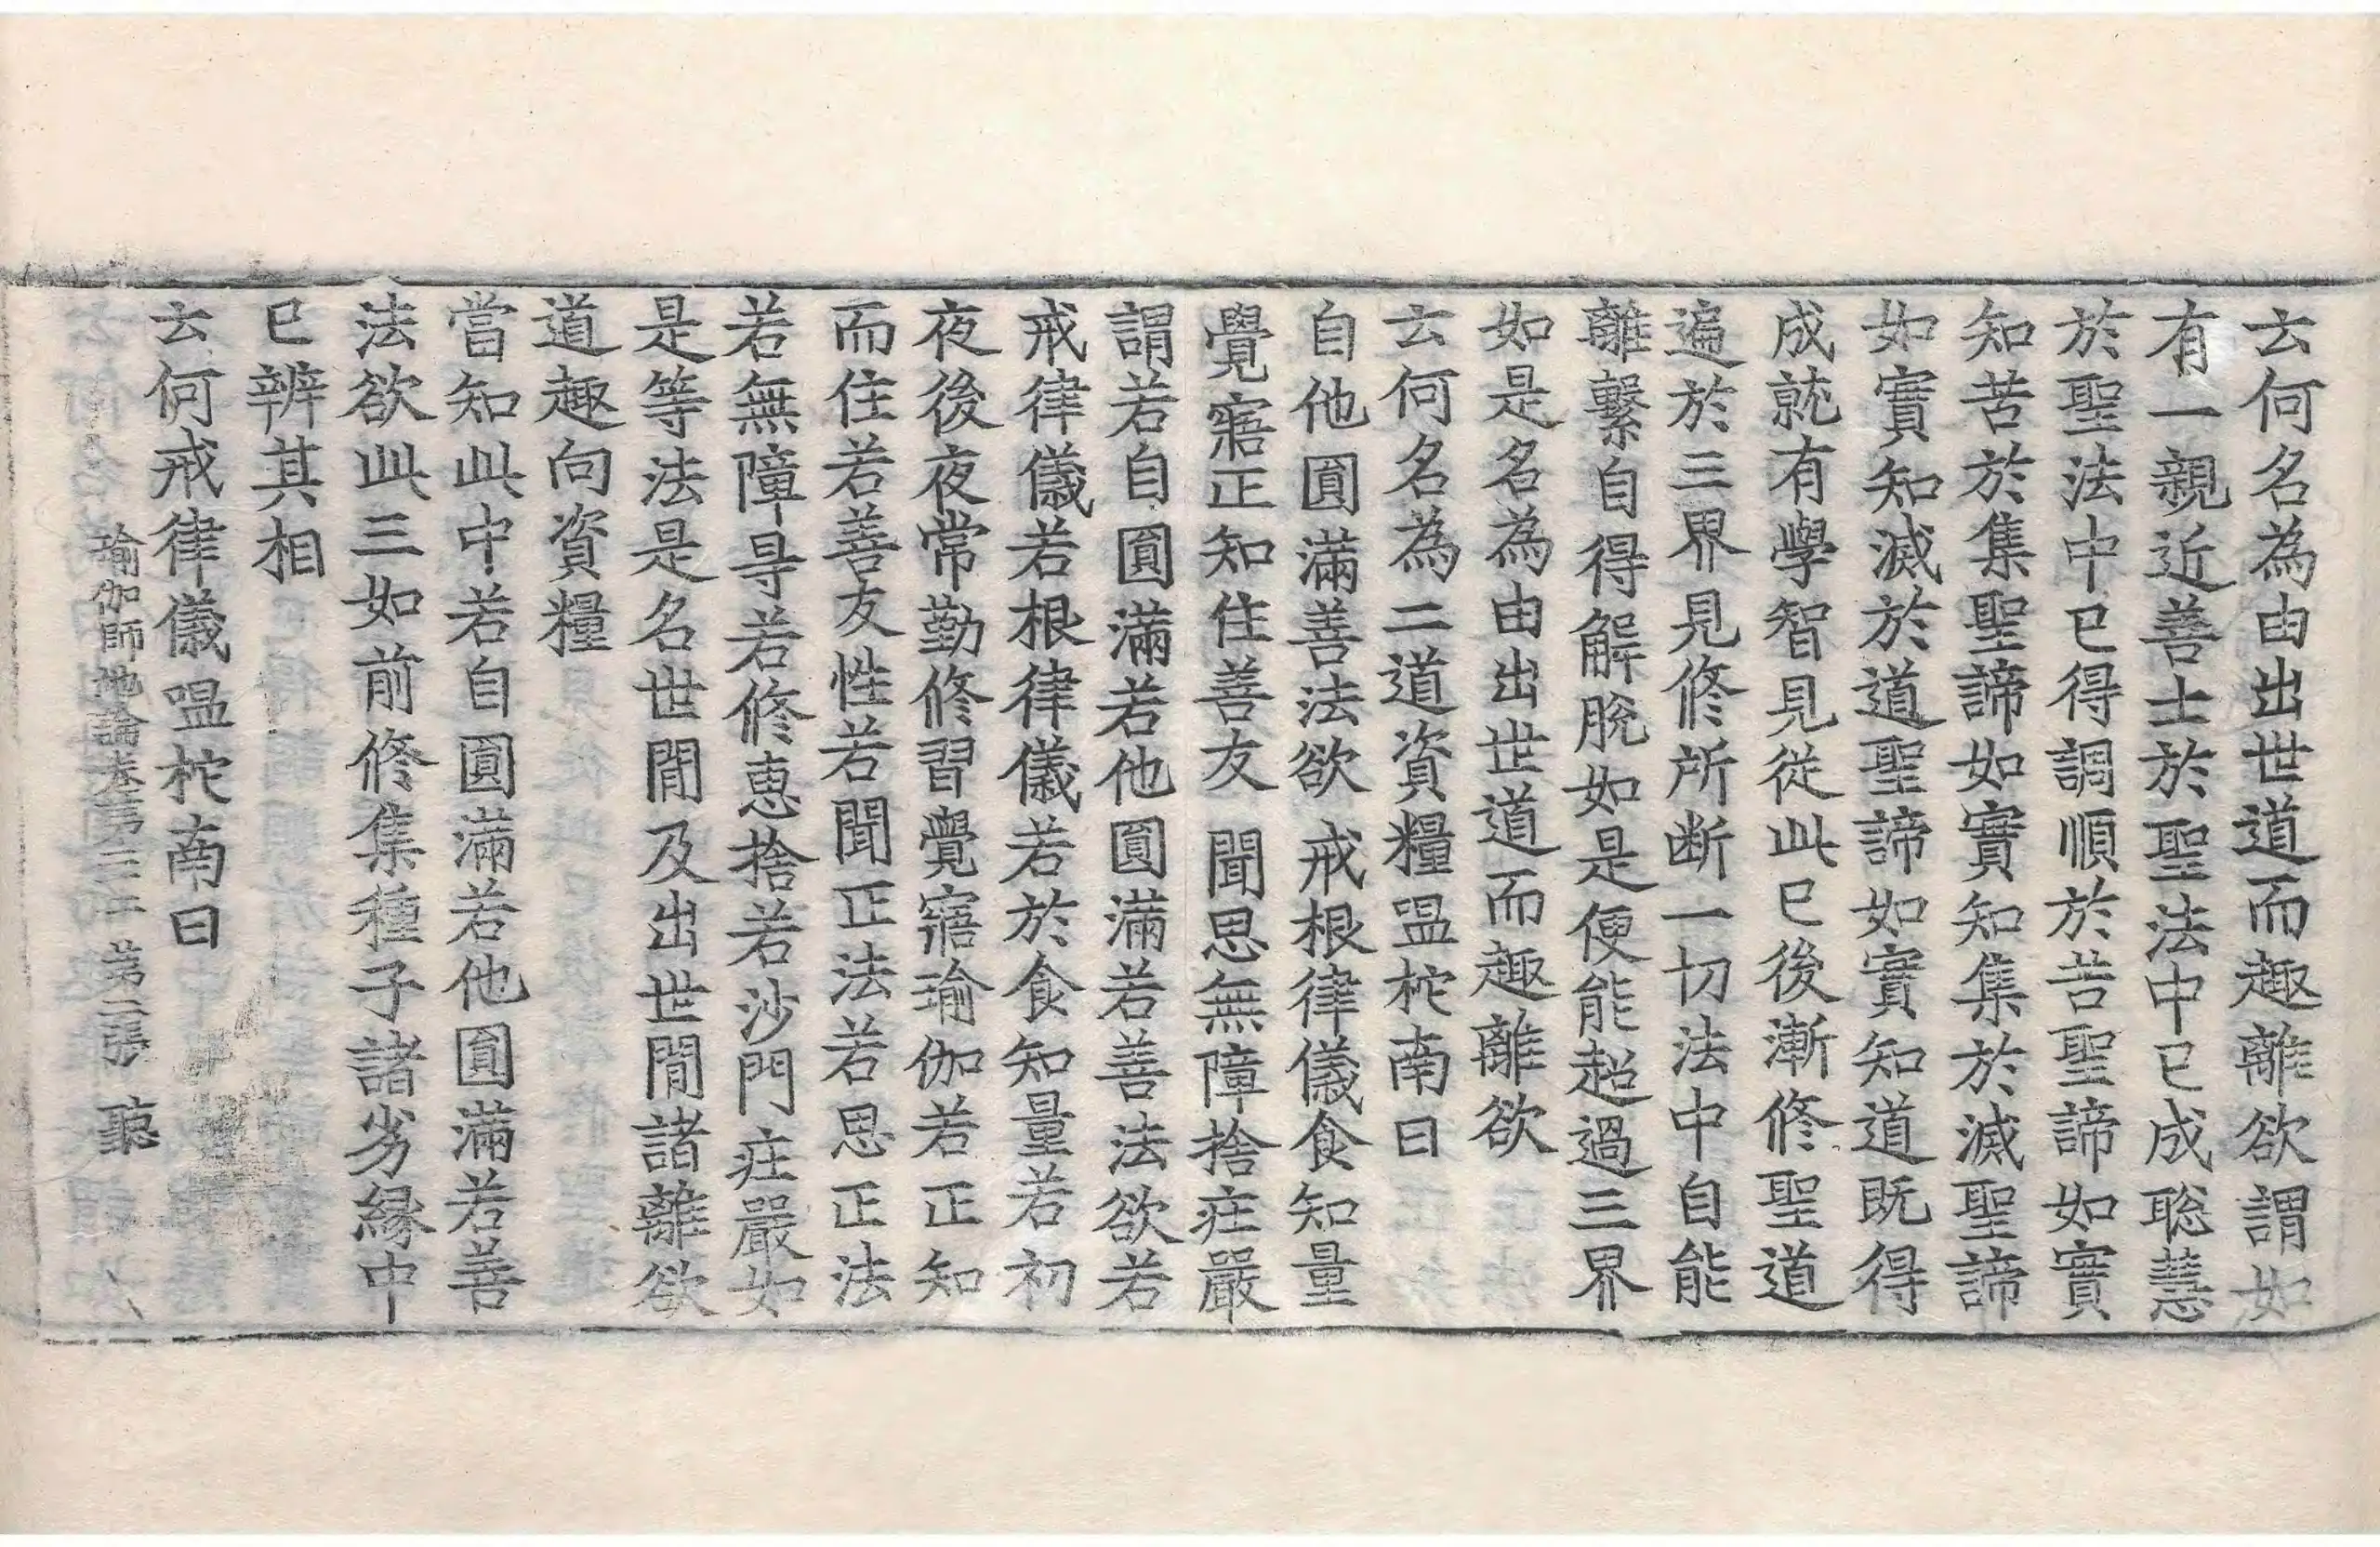 云何名為由出世道而趣離欲謂如
有一親近善士於聖法中已成聡慧
於聖法中已得調順於苦聖諦如實
知苦於集聖諦如實知集於滅聖諦
如實知滅於道聖諦如實知道既得
成就有學智見從此已後漸修聖道
遍於三界見修所断一切法中自能
離繫自得解脫如是便能超過三界
如是名為由出世道而趣離欲
云何名為二道資糧嗢柁南曰
自他圓滿善法欲 戒根律儀食知量
覺寤正知住善友 聞思無障捨莊嚴
謂若自圓滿若他圓滿若善法欲若
戒律儀若根律儀若於食知量若初
夜後夜常勤修習覺寤瑜伽若正知
而住若善友性若聞正法若思正法
若無障㝵若修惠捨若沙門莊嚴如
是等法是名世間及出世間諸離欲
道趣向資糧
當知此中若自圓滿若他圓滿若善
法欲此三如前修集種子諸劣緣中
已辨其相
云何戒律儀嗢柁南曰
瑜伽師地論卷第二十二 第二張 聽